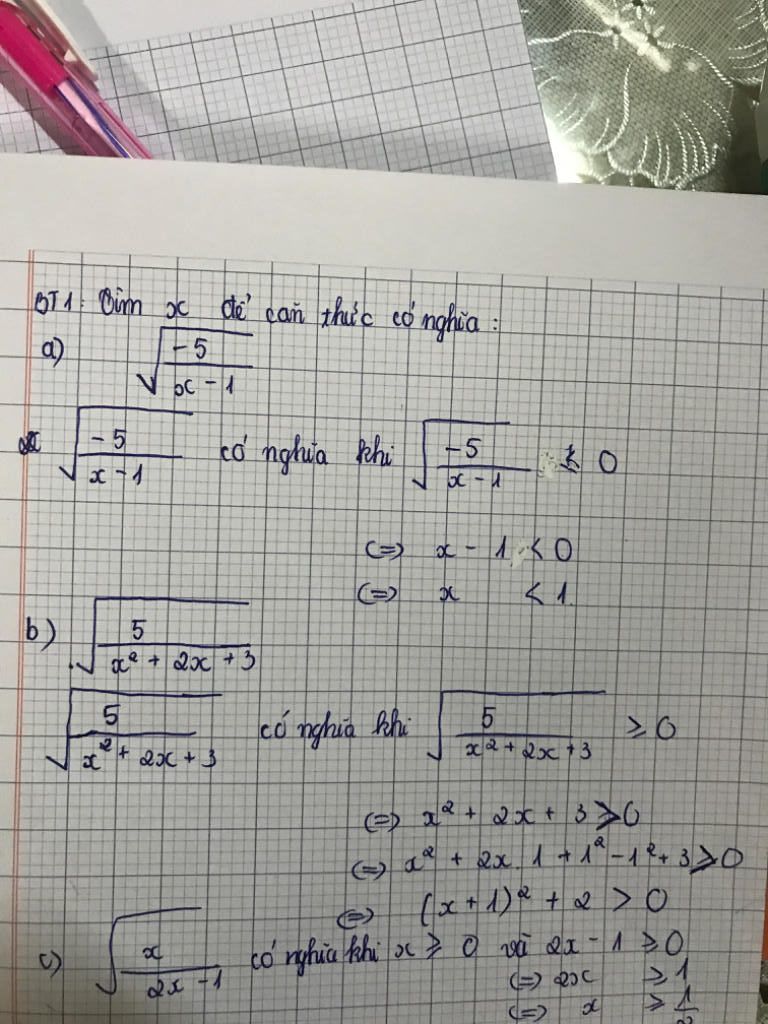 BT1: Tìm x để căn thức có nghĩa:
a) √(-5/(x - 1))
√(-5/(x - 1)) có nghĩa khi √(-5/(x - 1)) 0
(=) x - 1 < 0
(=) x < 1
b) √(5/(x² + 2x + 3))
√(5/(x² + 2x + 3)) có nghĩa khi √(5/(x² + 2x + 3)) ≥ 0
(=) x² + 2x + 3 ≥ 0
(=) x² + 2x.1 + 1² - 1² + 3 ≥ 0
(=) (x + 1)² + 2 > 0
c) √(x/(2x - 1)) có nghĩa khi x ≥ 0 và 2x - 1 ≥ 0
(=) 2x ≥ 1
(=) x ≥ 1/2